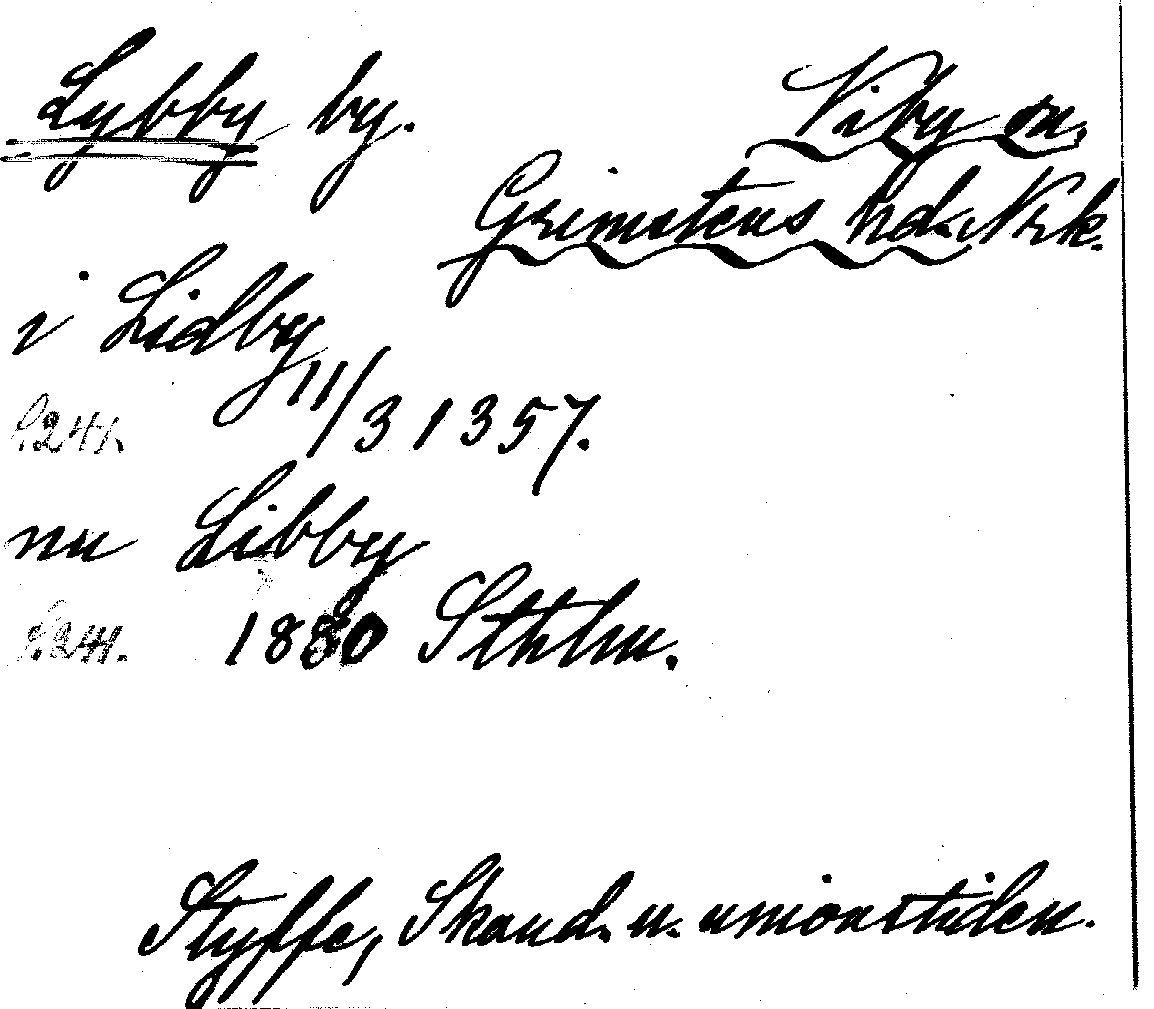 Lybby by.
Viby sn.
Grimstens hd. Nrk.
i Lidby
s. 241. 11/3 1357.
nu Libby
s. 241. 1880 Sthlm.
Styffe, Skand. u. unionstiden.